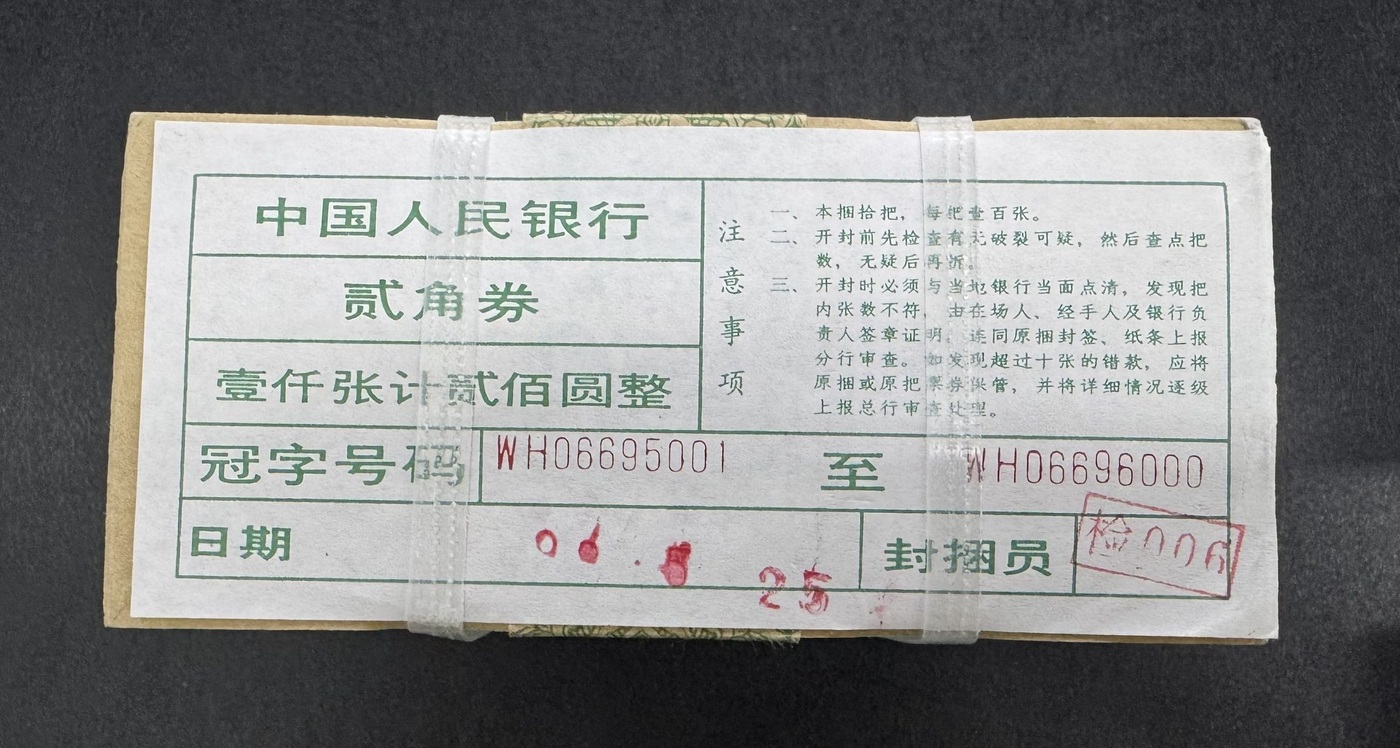 中国人民银行
贰角券
壹仟张计贰佰圆整
注意事项
一、本捆拾把，每把壹百张。
二、开封前先检查有无破裂可疑，然后查点把
数，无疑后再拆。
三、开封时必须与当地银行当面点清，发现把
内张数不符，由在场人、经手人及银行负
责人签章证明，连同原捆封签、纸条上报
分行审查。如发现超过十张的错款，应将
原捆或原把票券保管，并将详细情况逐级
上报总行审查处理。
冠字号码 WH06695001 至 WH06696000
日期 25 封捆员 检006